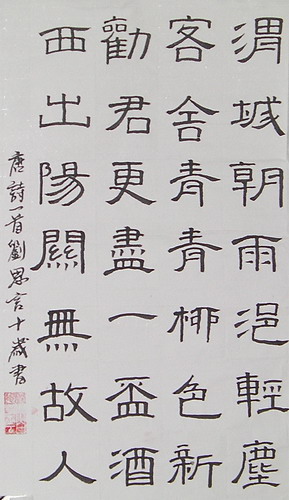 渭城朝雨浥輕塵
客舍青青柳色新
勸君更盡一盃酒
西出陽關無故人
唐詩一首劉思言十歲書